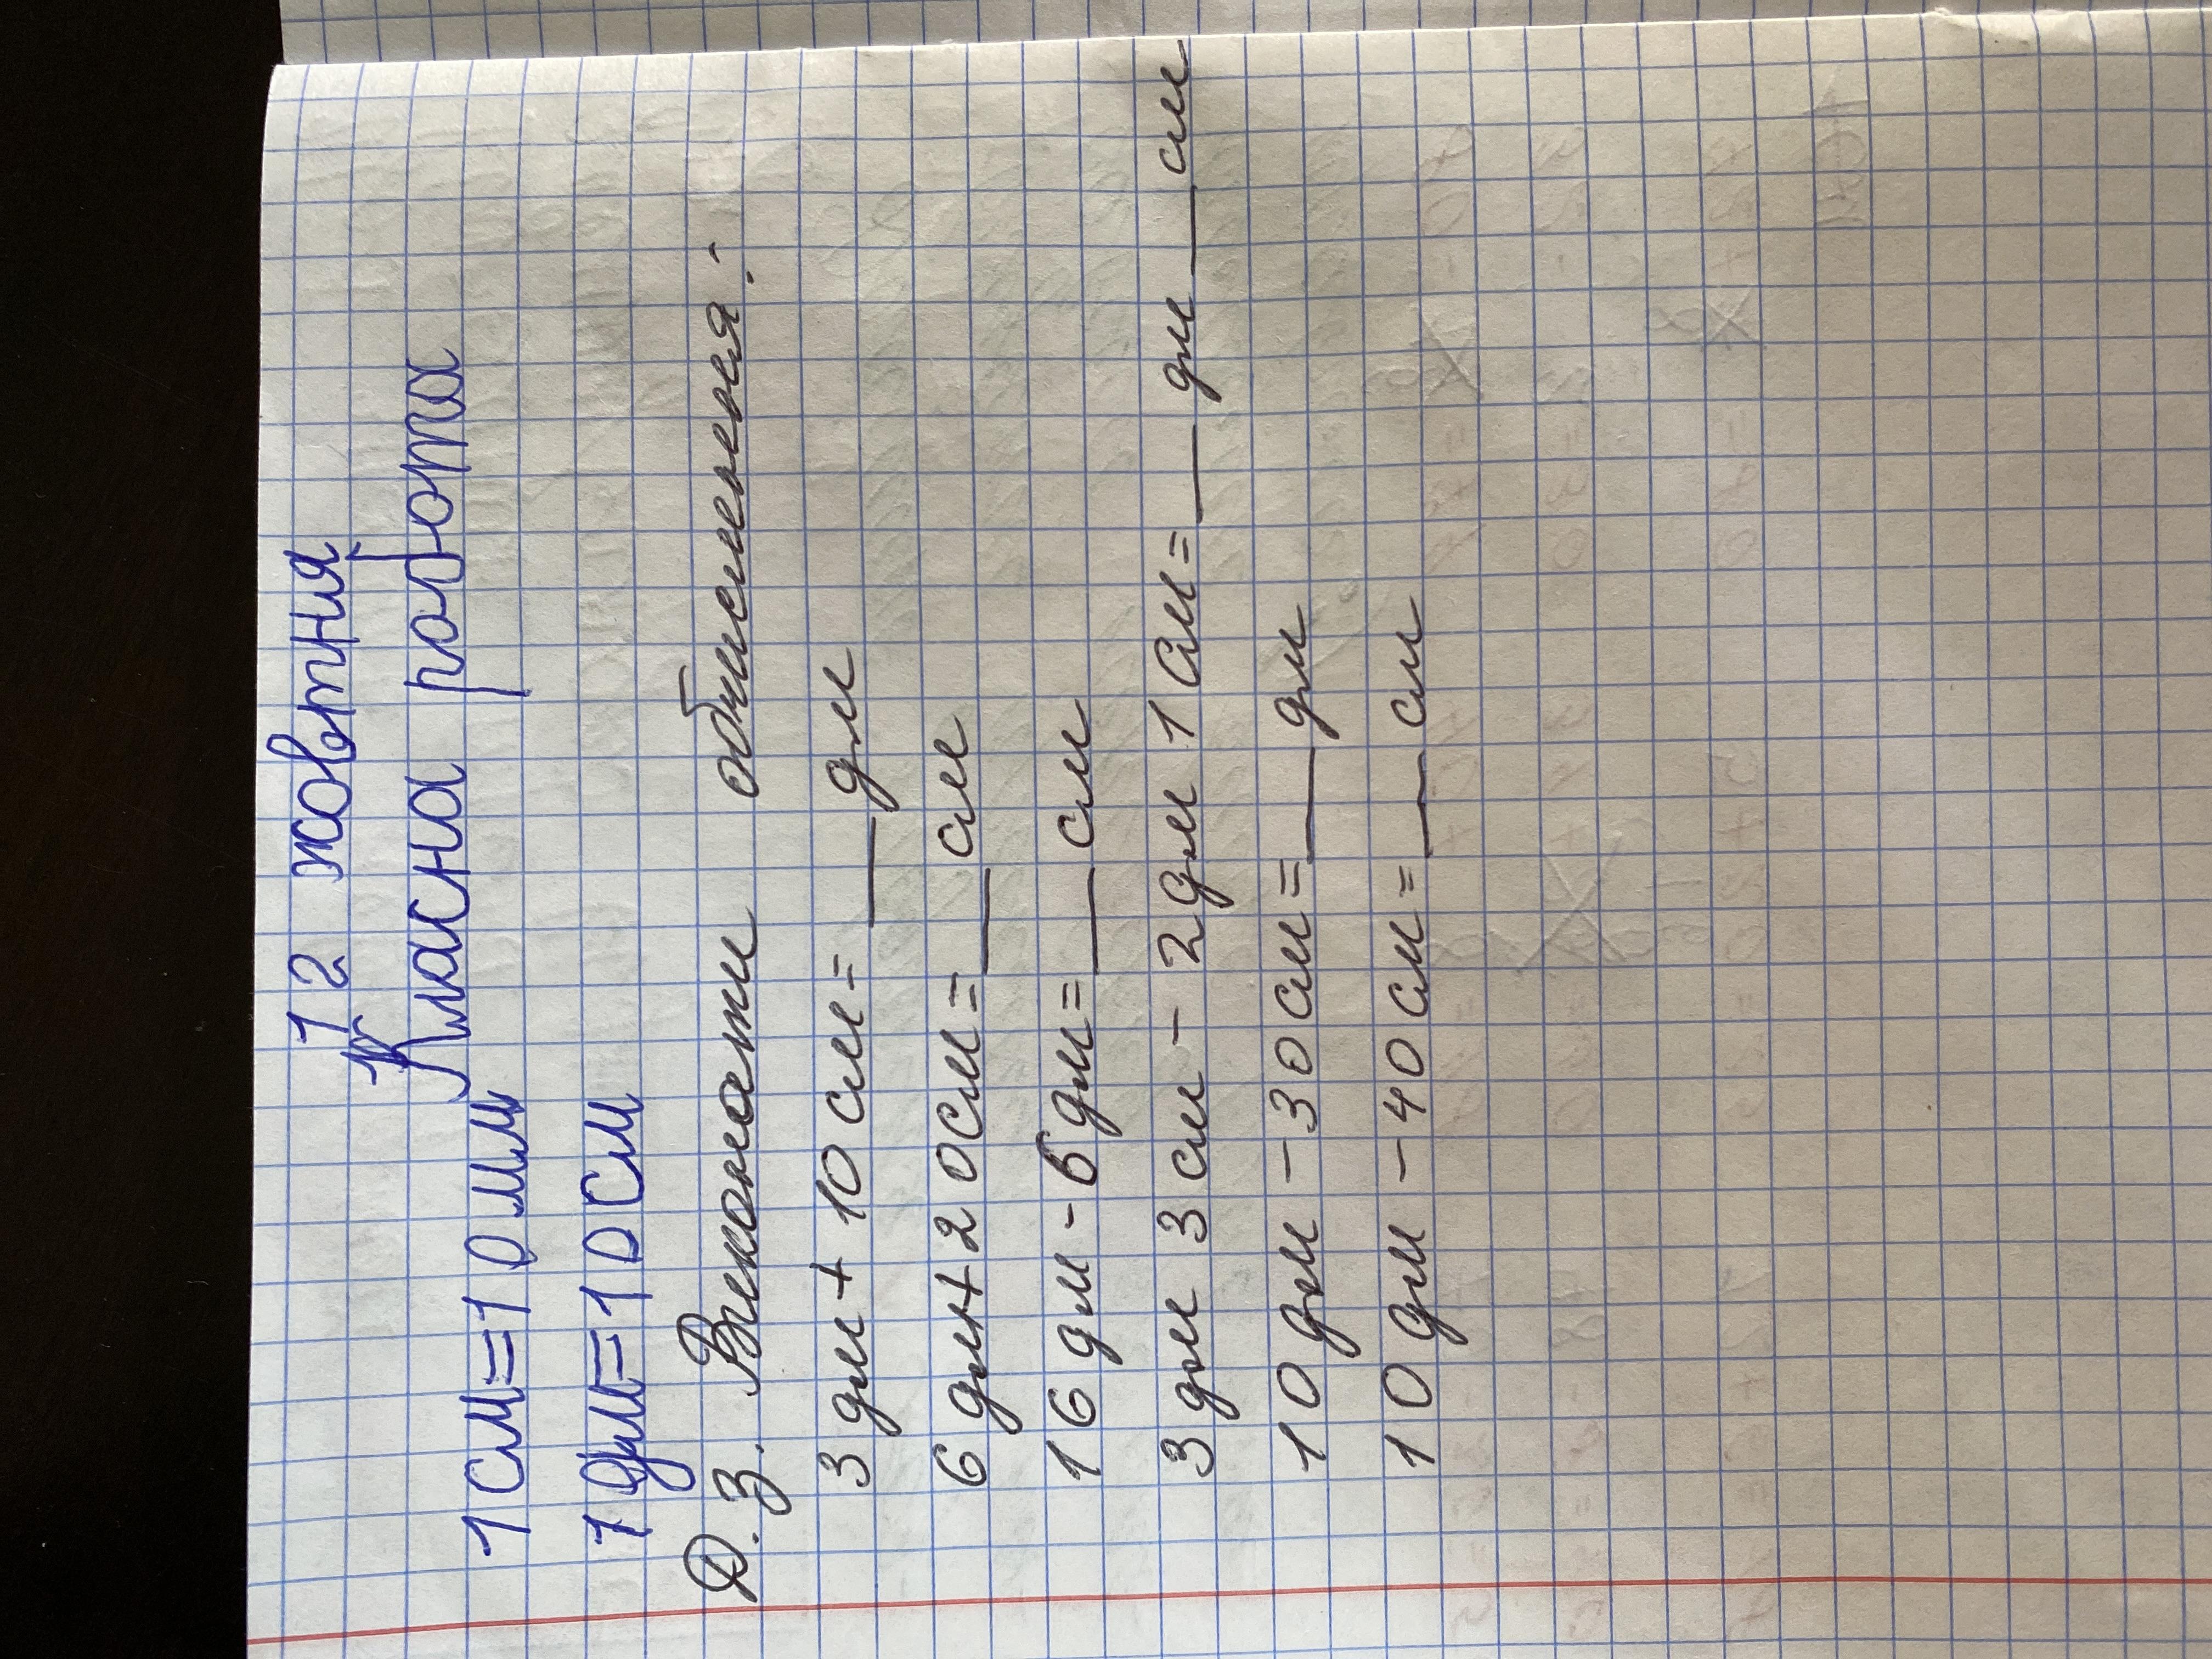 12 жовтня
Класна робота
1 см = 10 мм
1 дм = 10 см
Д. З. Виконати обчислення:
3 дм + 10 см = ___ дм
6 дм + 20 см = ___ см
16 дм - 6 дм = ___ см
3 дм 3 см - 2 дм 1 см = ___ дм ___ см
10 дм - 30 см = ___ дм
10 дм - 40 см = ___ см